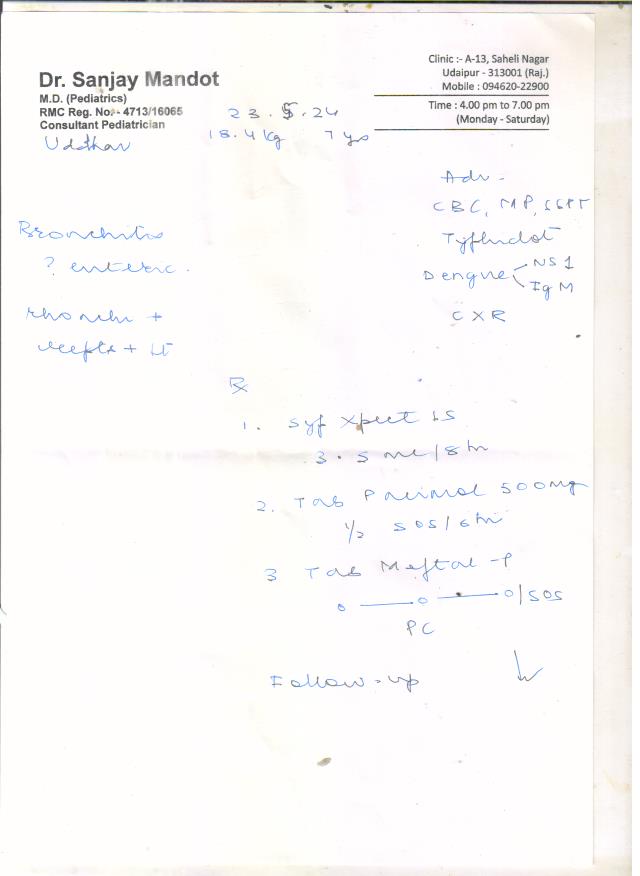 Dr. Sanjay Mandot
M.D. (Pediatrics)
RMC Reg. No. - 4713/16065
Consultant Pediatrician
Clinic :- A-13, Saheli Nagar
Udaipur - 313001 (Raj.)
Mobile : 094620-22900
Time : 4.00 pm to 7.00 pm
(Monday - Saturday)
23.5.24
18.4 kg 7 ys
Uddhav
Adv -
CBC, MP, SGPT
Typhidot
Dengue NS1
IgM
CXR
Bronchitis
? enteric.
rhonchi +
+
Rx
1. Syp Xpect LS
3.5 ml/8hr
2. Tab 500mg
1/2 SOS/6hr
3 Tab Meftal-P
0 — 0 — 0/SOS
PC
Follow-up